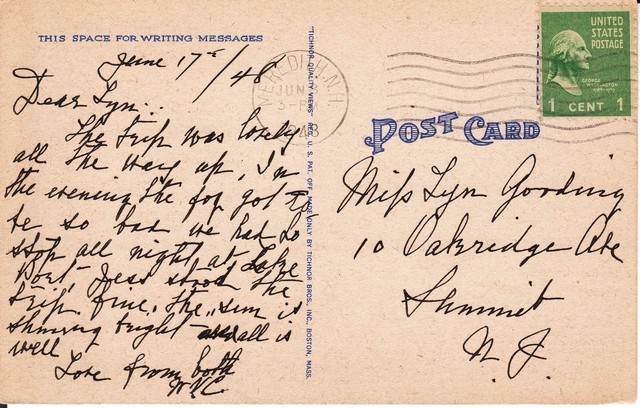 THIS SPACE FOR WRITING MESSAGES
June 17th/48
Dear Lyn..
The trip was lovely
all the way up, In
the evening the fog got to
be so bad we had to
stop all night at Lake
Port, Jess stood the
trip fine. The sun is
shining bright and all is
well
Love from both
W.V.C.
"TICHNOR QUALITY VIEWS" REG. U. S. PAT. OFF. MADE ONLY BY TICHNOR BROS., INC., BOSTON, MASS.
MEREDITH, N.H.
JUN
3-P
48
UNITED
STATES
POSTAGE
GEORGE
WASHINGTON
1 CENT 1
POST CARD
Miss Lyn Gooding
10 Oakridge Ave
Summit
N. J.